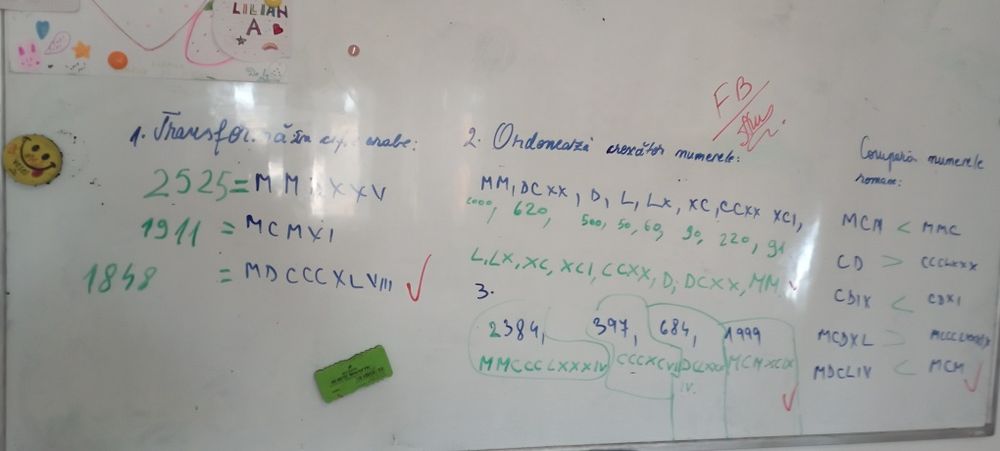 LILIAN
A
FB
1. Transformă în cif. arabe:
2525 = MMDXXV
1911 = MCMXI
1848 = MDCCCXLVIII
2. Ordonează crescător numerele:
MM, DCXX, D, L, LX, XC, CCXX XCI,
2000, 620, 500, 50, 60, 90, 220, 91
L, LX, XC, XCI, CCXX, D, DCXX, MM
3.
2384, 397, 684, 1999
MMCCCLXXXIV CCCXCVI DCLXXX MCMXCIX
IV.
Compară numerele
romane:
MCM < MMC
CD > CCCLXXX
CDIX < CDXI
MCDXL >
MDCLIV < MCM